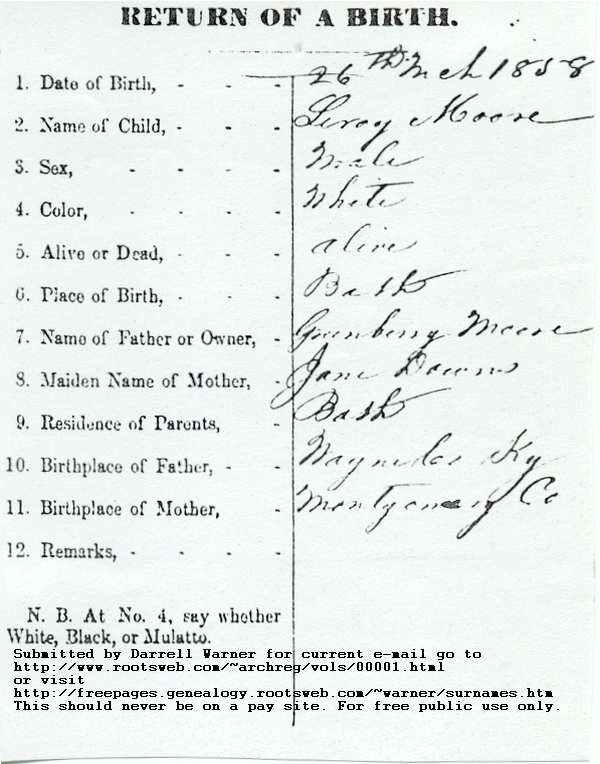 RETURN OF A BIRTH.
1. Date of Birth, - - - 26th Mch 1858
2. Name of Child, - - - Leroy Moore
3. Sex, - - - - Male
4. Color, - - - - White
5. Alive or Dead, - - - alive
6. Place of Birth, - - - Bath
7. Name of Father or Owner, - Greenberry Moore
8. Maiden Name of Mother, - Jane Downs
9. Residence of Parents, - Bath
10. Birthplace of Father, - - Ky
11. Birthplace of Mother, - Montgomery Co
12. Remarks, - - - -
N. B. At No. 4, say whether
White, Black, or Mulatto.
Submitted by Darrell Warner for current e-mail go to
http://www.rootsweb.com/~archreg/vols/00001.html
or visit
http://freepages.genealogy.rootsweb.com/~warner/surnames.htm
This should never be on a pay site. For free public use only.